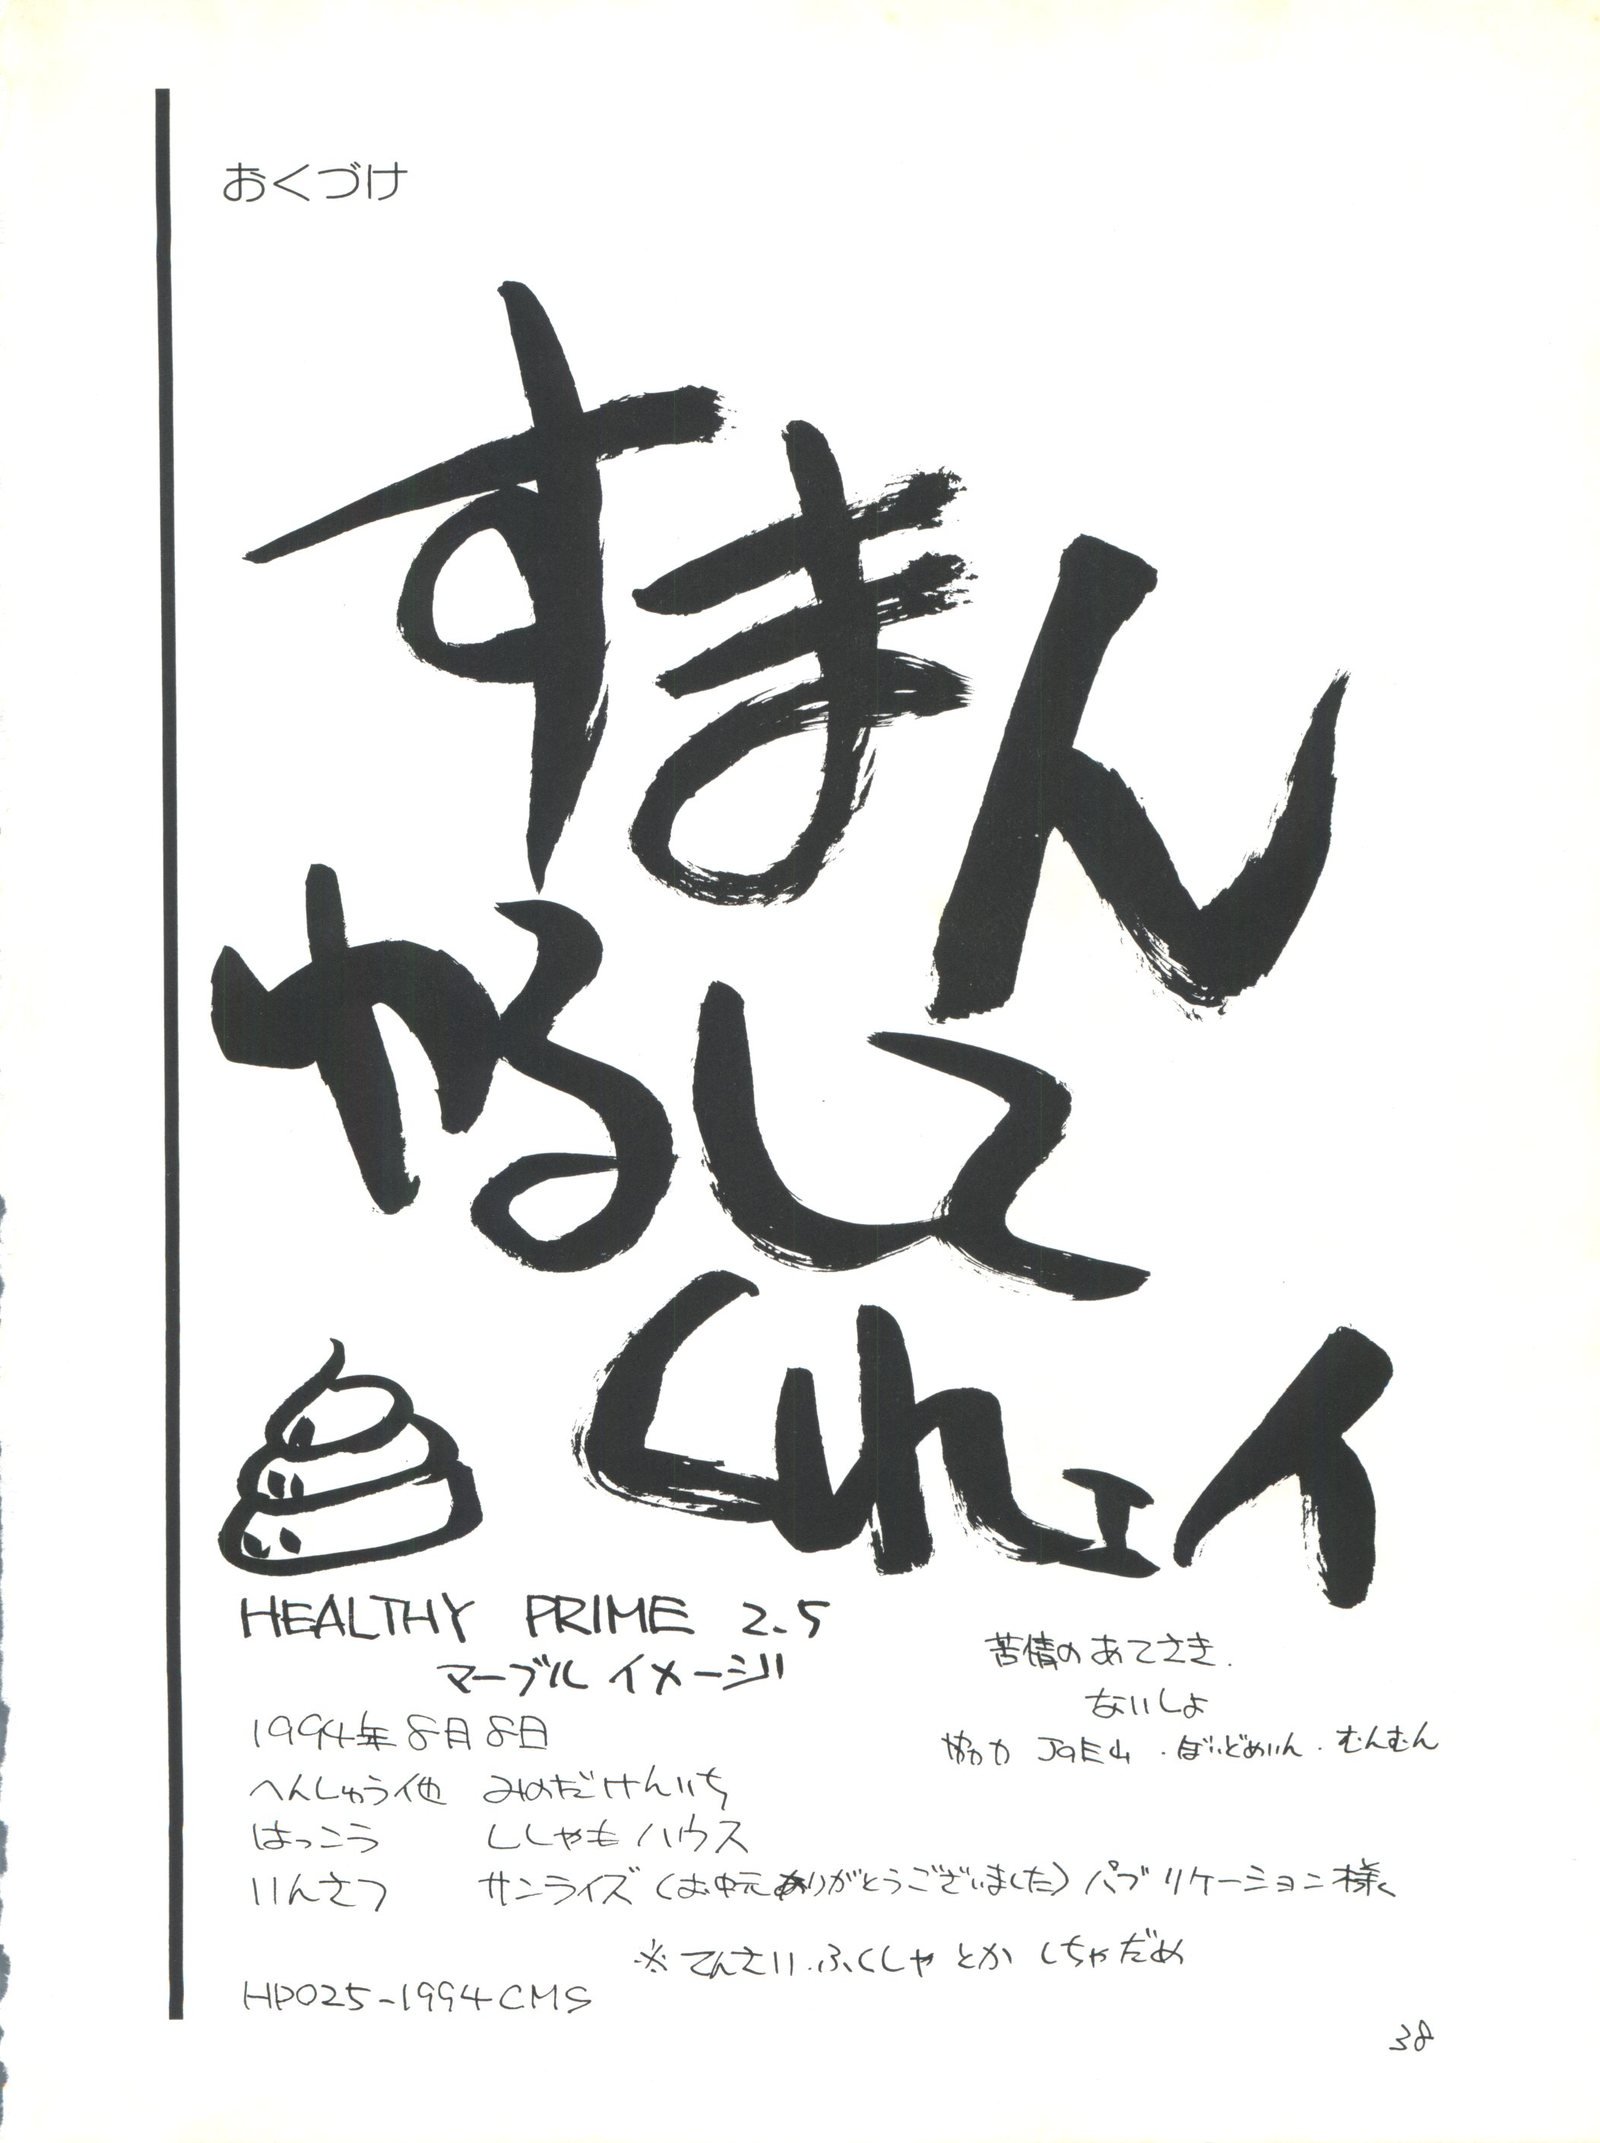 おくづけ
すまん
ゆるして
くれェイ
HEALTHY PRIME 2.5
マーブルイメージ
苦情のあてさき.
ないしょ
1994年8月8日
協力 ・ぼいどめいん・むんむん
へんしゅう他 みのだけんいち
はっこう ししゃもハウス
いんさつ サンライズ(お中元ありがとうございました)パブリケーション様
※てんさい.ふくしゃとかしちゃだめ
HP025-1994CMS
38